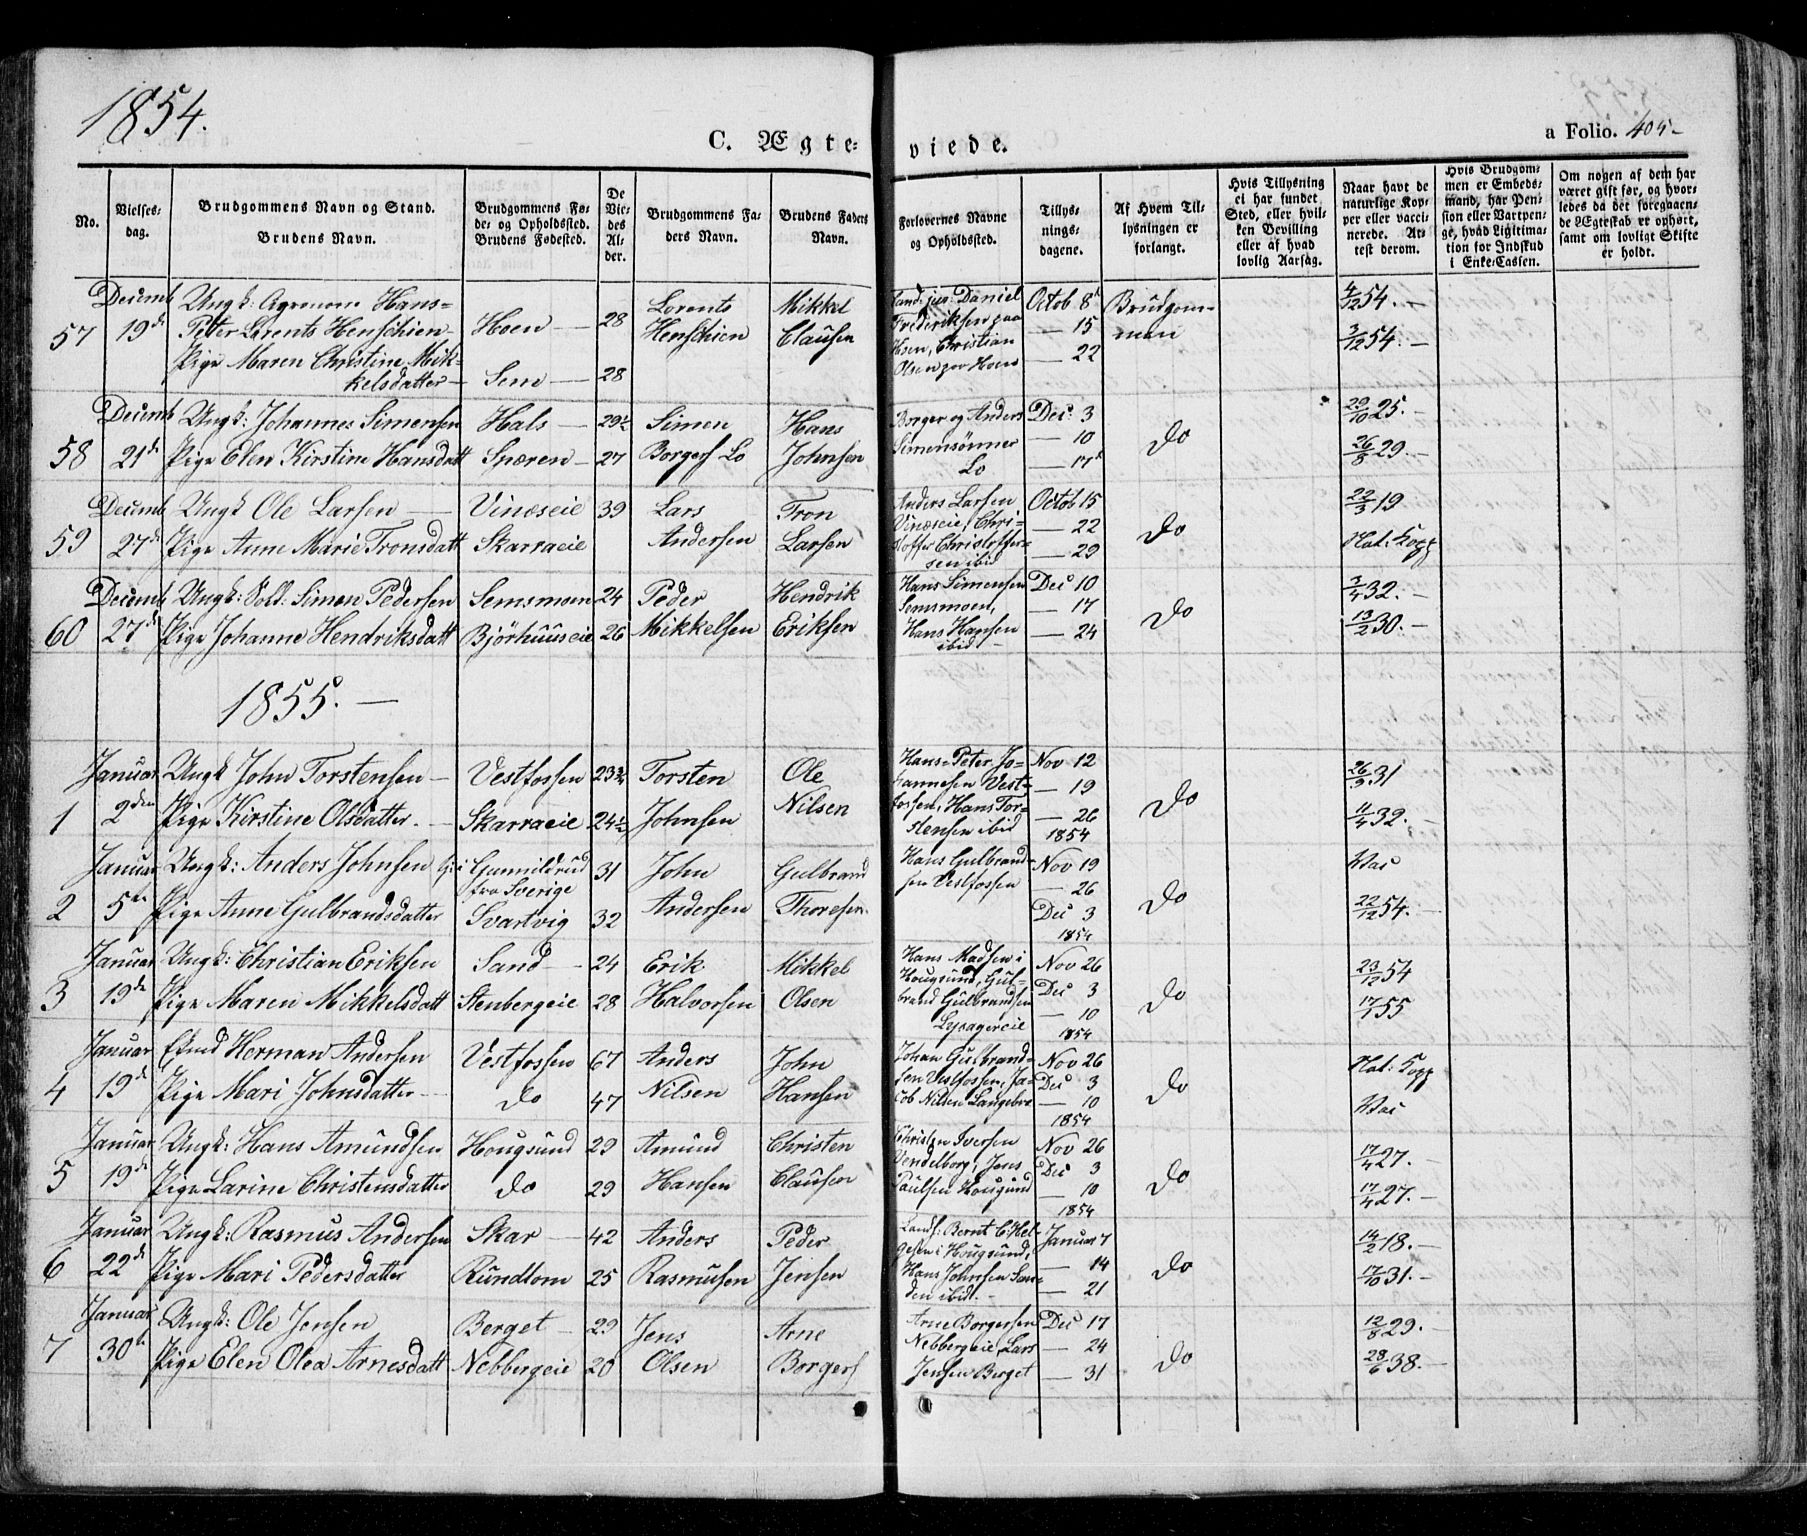 1854.
C. Ægte-
viede.
a Folio. 405-
No.
Vielses-
dag.
Brudgommens Navn og Stand.
Brudens Navn.
Brudgommens Fø-
de- og Opholdssted.
Brudens Fødested.
De
Vie-
des
Al-
der.
Brudgommens Fa-
ders Navn.
Brudens Faders
Navn.
Forlovernes Navne
og Opholdssted.
Tillys-
nings-
dagene.
Af Hvem Til-
lysningen er
forlangt.
Hvis Tillysning
ei har fundet
Sted, eller hvil-
ken Bevilling
eller af hvad
lovlig Aarsag.
Naar havt de
naturlige Kop-
per eller vacci-
nerede. At-
test derom.
Hvis Brudgom-
men er Embeds-
mand, har Pen-
sion eller Vartpen-
ge, hvad Ligitima-
tion for Indskud
i Enke-Cassen.
Om nogen af dem har
været gift før, og hvor-
ledes da det foregaaen-
de Ægteskab er ophørt,
samt om lovligt Skifte
er holdt.
57 Decemb 19de
Ungk: Agronom Hans-
Peter Lorents Henschien-
Hoen — 28
Lorents Henschien
Mikkel Clausen
Pige Maren Christine Mik-
kelsdatter- Sem — 28
Cand: jur: Daniel
Frederiksen paa
Hoen, Christian
Olsen paa Hoen
Octob 8de
— 15
— 22
Brudgom-
men
4/12 54.-
3/12 54.-
58 Decemb 21de
Ungk: Johannes Simensen Hals — 29½ Simen Hans
Pige Elen Kirstine Hansdatt Speren- 27 Borgers Lo Johnsen
Borger og Anders
Simensønner
Lo
Dec: 3
— 10
— 17
Do
29/10 25.-
26/8 29.-
59 Decemb 27de
Ungk Ole Larsen — Vinæseie 39 Lars Tron
Pige Anne Marie Tronsdatt Skarraeie Andersen Larsen
Anders Larsen
Vinæseie, Chri-
stoffer Christoffer-
sen ibid
Octob 15
— 22
— 29
Do
22/3 19
Nat: Kopp
60 Decemb 27de
Ungk: Sold: Simen Pedersen Semsmoen 24 Peder Hendrik
Pige Johanne Hendriksdatt Bjørhuuseie 26 Mikkelsen Eriksen
Hans Simensen
Semsmoen,
Hans Hansen
ibid-
Dec 10
— 17
— 24
Do
7/4 32.-
13/2 30.-
1855.-
1 Januar 2den
Ungk John Torstensen- Vestfossen 23¾ Torsten Ole
Pige Kirstine Olsdatter.- Skarraeie 24½ Johnsen Nilsen
Hans Peter Jo-
hannesen Vest-
fossen, Hans Tor-
stensen ibid
Nov 12
— 19
— 26
1854
Do
26/3 31
11/4 32.-
2 Januar 5te
Ungk: Anders Johnsen Gunnildrud 31 John Gulbrand
fra Sverige
Pige Anne Gulbrandsdatter Svartvig 32 Andersen Thoresen.
Hans Gulbrand-
sen Vestfossen
Nov 19
— 26
Dec 3
1854
Do
Vac
22/12 54.-
3 Januar 19de
Ungk: Christian Eriksen Sand- 24 Erik Mikkel
Pige Maren Mikkelsdatt Stenbergeie 28 Halvorsen Olsen
Hans Madsen i
Hougsund, Gul-
brand Gulbrandsen
Nov 26
Dec 3
— 10
1854
Do
23/12 54
17/1 55
4 Januar 19de
Ekmd Herman Andersen Vestfossen 67 Anders John
Pige Mari Johnsdatter- Do 47 Nilsen Hansen
Johan Gulbrand-
sen Vestfossen, Ja-
cob Nilsen Langebro
Nov 26
Dec 3
— 10
1854
Do
Nat: Kopp
Vac
5 Januar 19de
Ungk: Hans Amundsen Hougsund 29 Amund Christen
Pige Larine Christensdatter Do 29 Hansen Clausen
Christen Iversen
Vendelborg, Jens
Paulsen Hougsund
Nov 26
Dec 3
— 10
1854
Do
17/4 27.-
17/4 27.-
6 Januar 22de
Ungk: Rasmus Andersen Skar — 42 Anders Peder
Pige Mari Pedersdatter Rundtom 25 Rasmusen Jensen
Lands: Bernt C Hel-
gesen i Hougsund,
Hans Johnsen San-
den ibid.-
Januar 7
— 14
— 21
Do
14/2 18.-
17/10 31.-
7 Januar 30te
Ungk: Ole Jensen Berget — 29 Jens Arne
Pige Elen Olea Arnesdatt Nebbergeie 20 Olsen Borgers
Arne Borgersen
Nebbergeie, Lars
Jensen Berget
Dec 17
— 24
— 31
Do
12/8 29.-
28/6 38.-